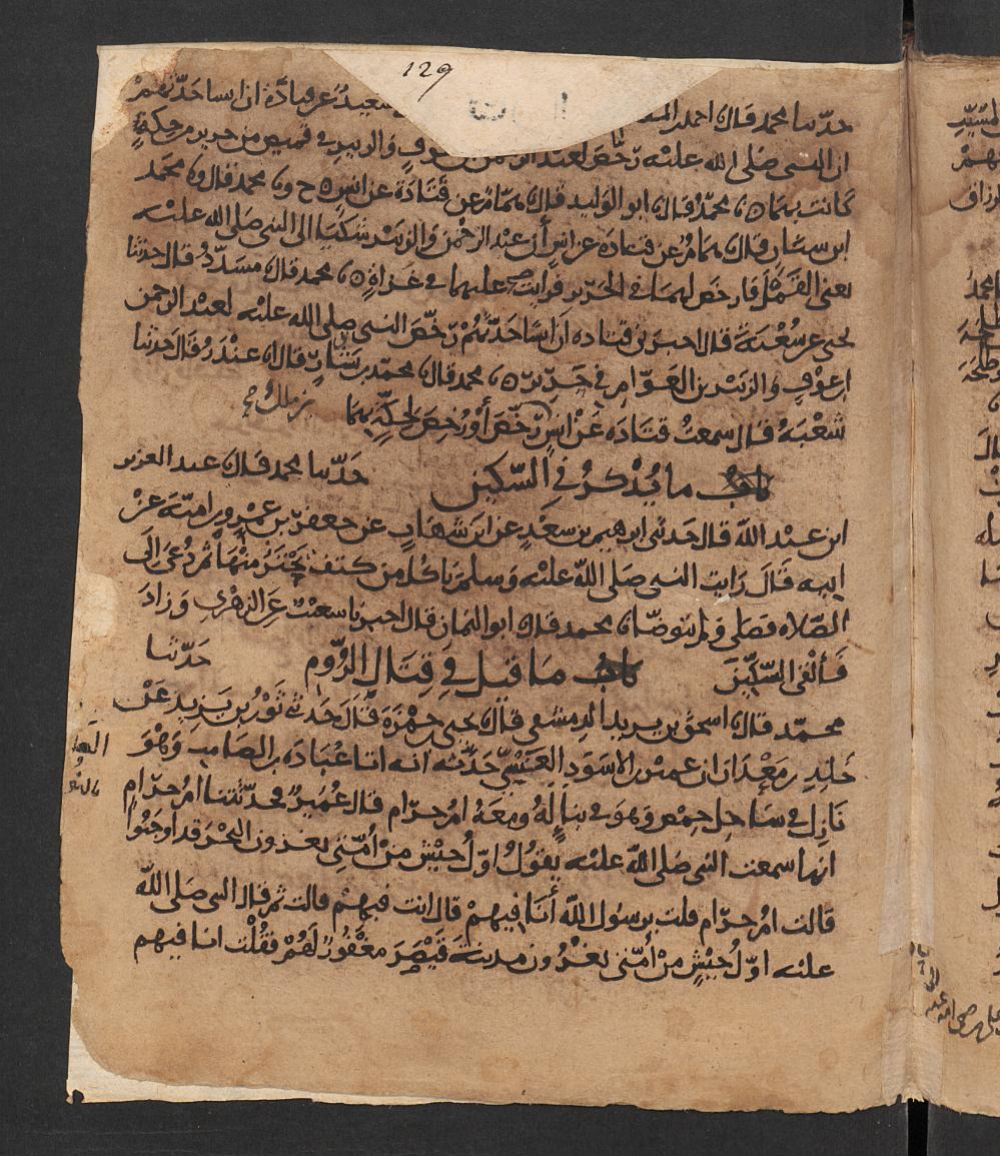 129
حدثنا محمد قال احمد سعيد عن قتادة ان انسا حدثهم
ان النبي صلى الله عليه رخص لعبد الرحمن بن عوف والزبير في قميص من حرير من حكة
كانت بهما محمد قال ابو الوليد قال همام عن قتادة عن انس ح محمد قال محمد
ابن سنان قال همام عن قتادة عن انس أن عبد الرحمن والزبير شكيا الى النبي صلى الله عليه
يعني القمل فارخص لهما في الحرير فرايت عليهما في غزاة محمد قال مسدد قال حدثنا
يحيى عن شعبة قال اخبرني قتادة أن انسا حدثهم رخص النبي صلى الله عليه لعبد الرحمن
ابن عوف والزبير بن العوام في حرير محمد قال محمد بن بشار قال غندر قال حدثنا
شعبة قال سمعت قتادة عن انس رخص أو رخص لحكة بهما
باب ما يذكر في السكين حدثنا محمد قال عبد العزيز
ابن عبد الله قال حدثني ابرهيم بن سعد عن ابن شهاب عن جعفر بن عمرو بن امية عن
ابيه قال رايت النبي صلى الله عليه وسلم ياكل من كتف يحتز منها ثم دعي الى
الصلاه فصلى ولم يتوضا محمد قال ابو اليمان قال اخبرنا شعيب عن الزهري وزاد
فألقى السكين باب ما قيل في قتال الروم حدثنا
محمد قال اسحق بن يزيد الدمشقي قال يحيى حمزة قال حدثني ثور بن يزيد عن
خلد بن معدان ان عمير بن الاسود العنسي حدثه انه اتا عبادة بن الصامت وهو
نازل في ساحل حمص وهو في بناء له ومعه ام حرام قال عمير فحدثتنا ام حرام
انها سمعت النبي صلى الله عليه يقول اول جيش من أمتي يغزون البحر قد اوجبوا
قالت ام حرام قلت يرسول الله أنا فيهم قال انت فيهم قالت ثم قال النبي صلى الله
عليه اول جيش من أمتي يغزون مدينة قيصر مغفور لهم فقلت انا فيهم